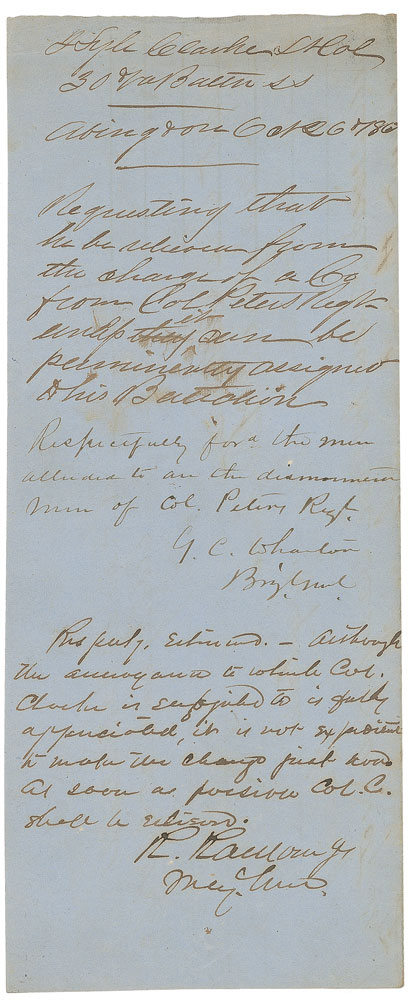 J Lyle Clarke Lt Col
30 Va Battn SS
Abingdon Oct 26th /86
Requesting that
he be relieved from
the charge of a Co
from Col Peters Regt
until it can be
permanently assigned
to his Battalion
Respectfully ford. the men
alluded to are the dismounted
men of Col. Peters Regt.
G. C. Wharton
Brig. Genl
Respcty. returned. – Although
the annoyance to which Col.
Clarke is subjected to is fully
appreciated, it is not expedient
to make the change just now.
As soon as possible Col. C.
shall be relieved.
R. Ransom Jr
Maj. Genl.